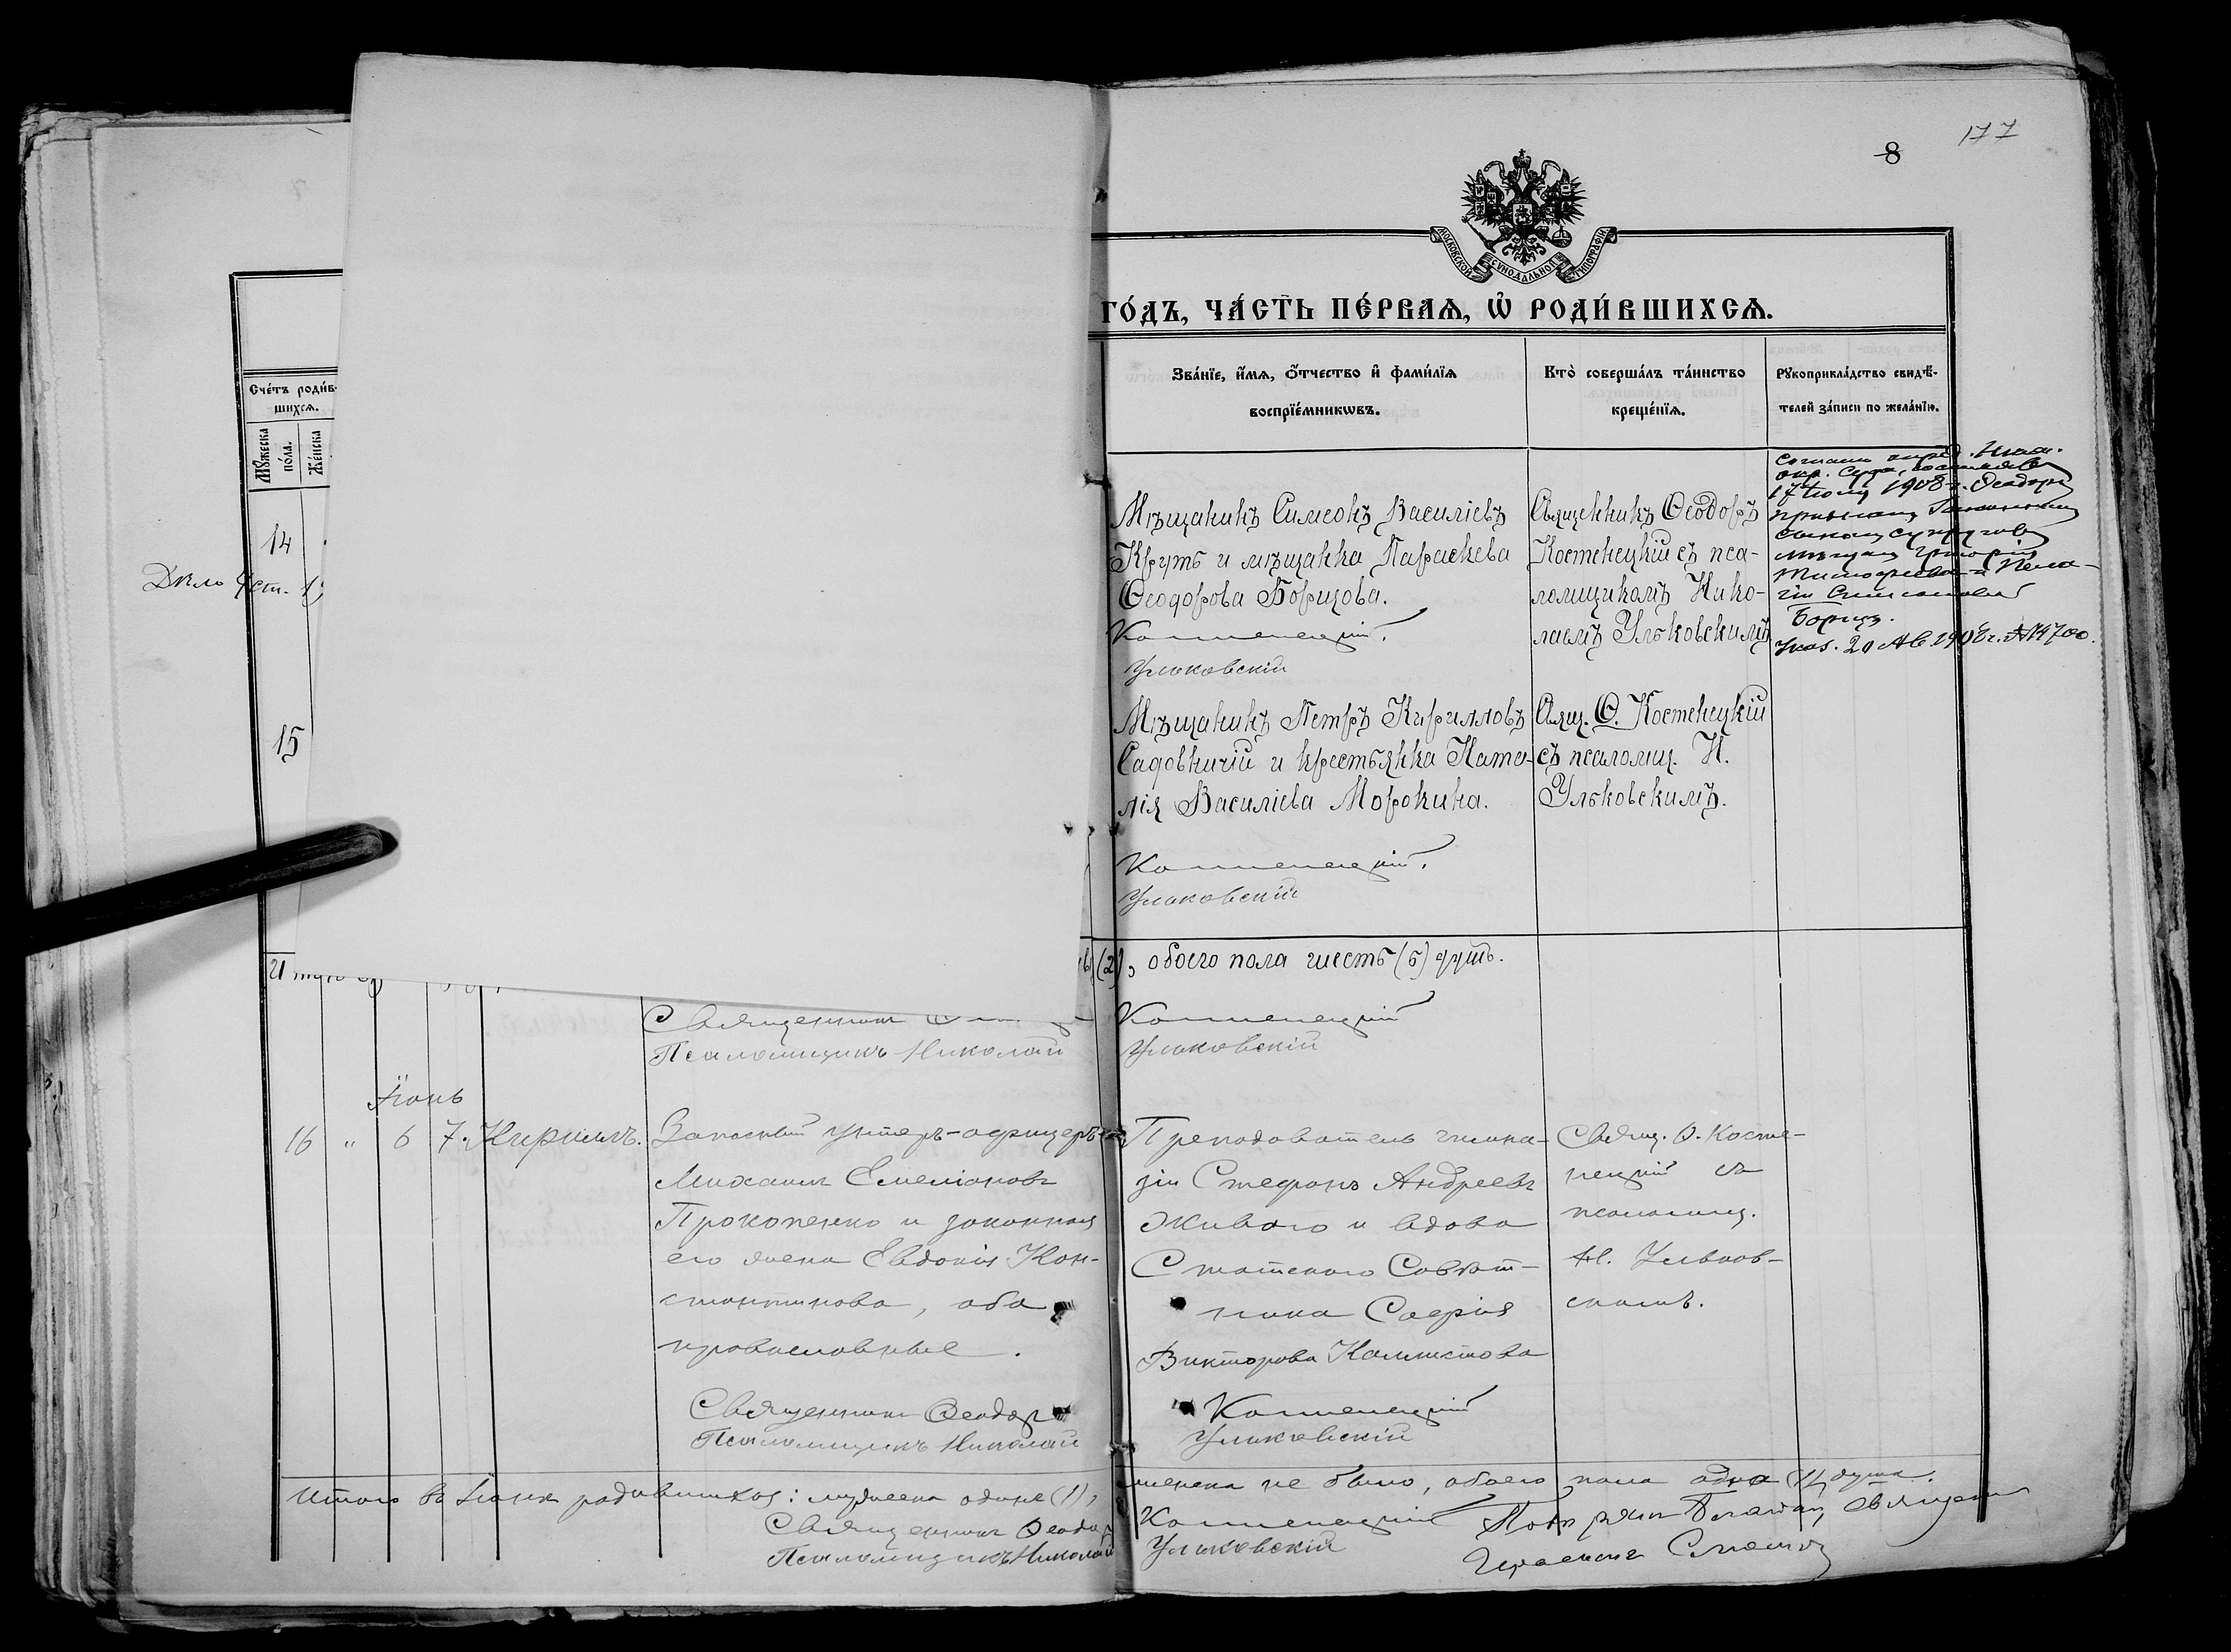 177
8
МОСКОВСКОЙ СѴНОДАЛЬНОЙ ТИПОГРАФІИ
ГО́ДЪ, ЧА́СТЬ ПЕ́РВАѦ, Ѡ҆ РОДИ́ВШИХСѦ.
Сче́тъ роди́в-
шихсѧ.
Мꙋ́жеска
по́ла.
Же́нска
Зва́нїе, и҆́мѧ, ѻ҆́тчество и҆ фами́лїѧ
воспрїе́мникѡвъ.
Кто̀ соверша́лъ та́инство
креще́нїѧ.
Рꙋкоприкла́дство свидѣ́-
телей за́писи по жела́нїю.
14
Дѣло
Мѣщанинъ Симеонъ Василіевъ
Круть и мѣщанка Параскева
Ѳеодорова Борцова.
Костенецкій.
Ульковскій
Священникъ Ѳеодоръ
Костенецкій съ пса-
ломщикомъ Нико-
лаемъ Ульковскимъ
17 1908 г.
Борщъ.
Указ. 20 Ав. 1908 г. № 14700.
15
Мѣщанинъ Петръ Кирилловъ
Садовничій и крестьянка Ната-
лія Василіева Морокина.
Костенецкій.
Ульковскій
Свящ. Ѳ. Костенецкій
съ псаломщ. Н.
Ульковскимъ.
(2), обоего пола шесть (6) душъ.
Священникъ
Костенецкій
Псаломщикъ Николай
Ульковскій
Іюнь
16 " 6 7. Кириллъ.
Запасный унтеръ-офицеръ
Михаилъ Емеліановъ
Прокопенко и законная
его жена Евдокія Кон-
стантинова, оба
православные.
Священникъ Ѳеодоръ
Псаломщикъ Николай
Преподаватель гимна-
зіи Стефанъ Андреевъ
Живаго и вдова
Статскаго Совѣт-
ника Софія
Викторова Калистова
Костенецкій
Ульковскій
Свящ. Ѳ. Косте-
нецкій съ
псаломщ.
Н. Ульков-
скимъ.
Итого въ Іюнѣ родившихся: мужеска одинъ (1), женска не было, обоего пола одна (1) душа.
Священникъ Ѳеодоръ Костенецкій
Псаломщикъ Николай Ульковскій